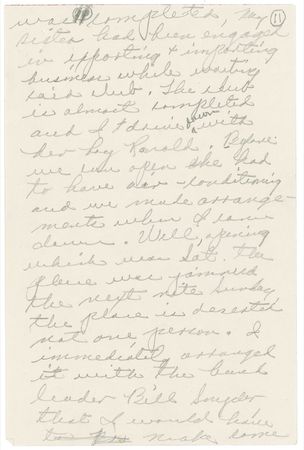 11
was completed, my
sister had been engaged
in exporting & importing
business while waiting
said club. The club
is almost completed
and I drive down with
her boy Ronald. Before
we can open she had
to have air-conditioning
and we made arrange-
ments when I came
down. Well, opening
which was Sat. the
place was jammed
the next nite Sunday
the place is deserted
not one person. I
immediately arranged
it with the band
leader Bill Snyder
that I would have
to make some